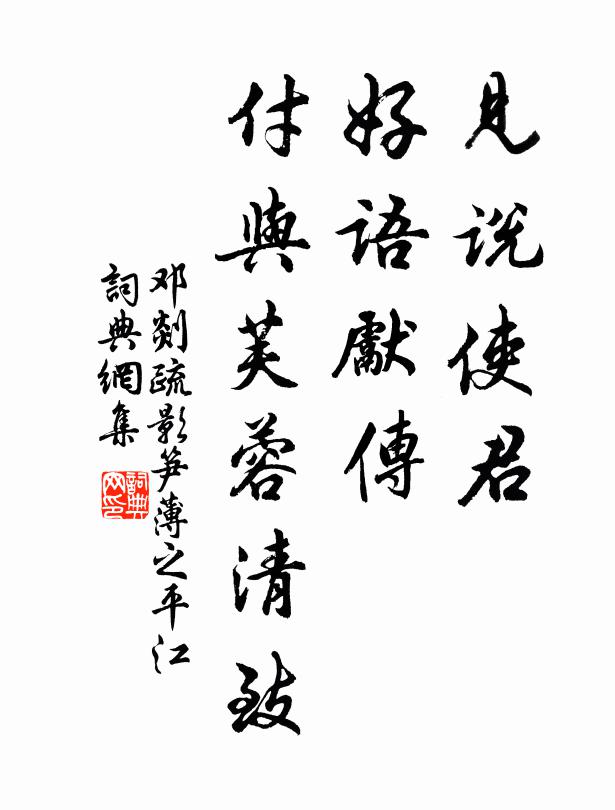 見説使君
好語獻傳
付與芙蓉清致
邓剡疏影笋薄之平江
詞典網集
詞典网印